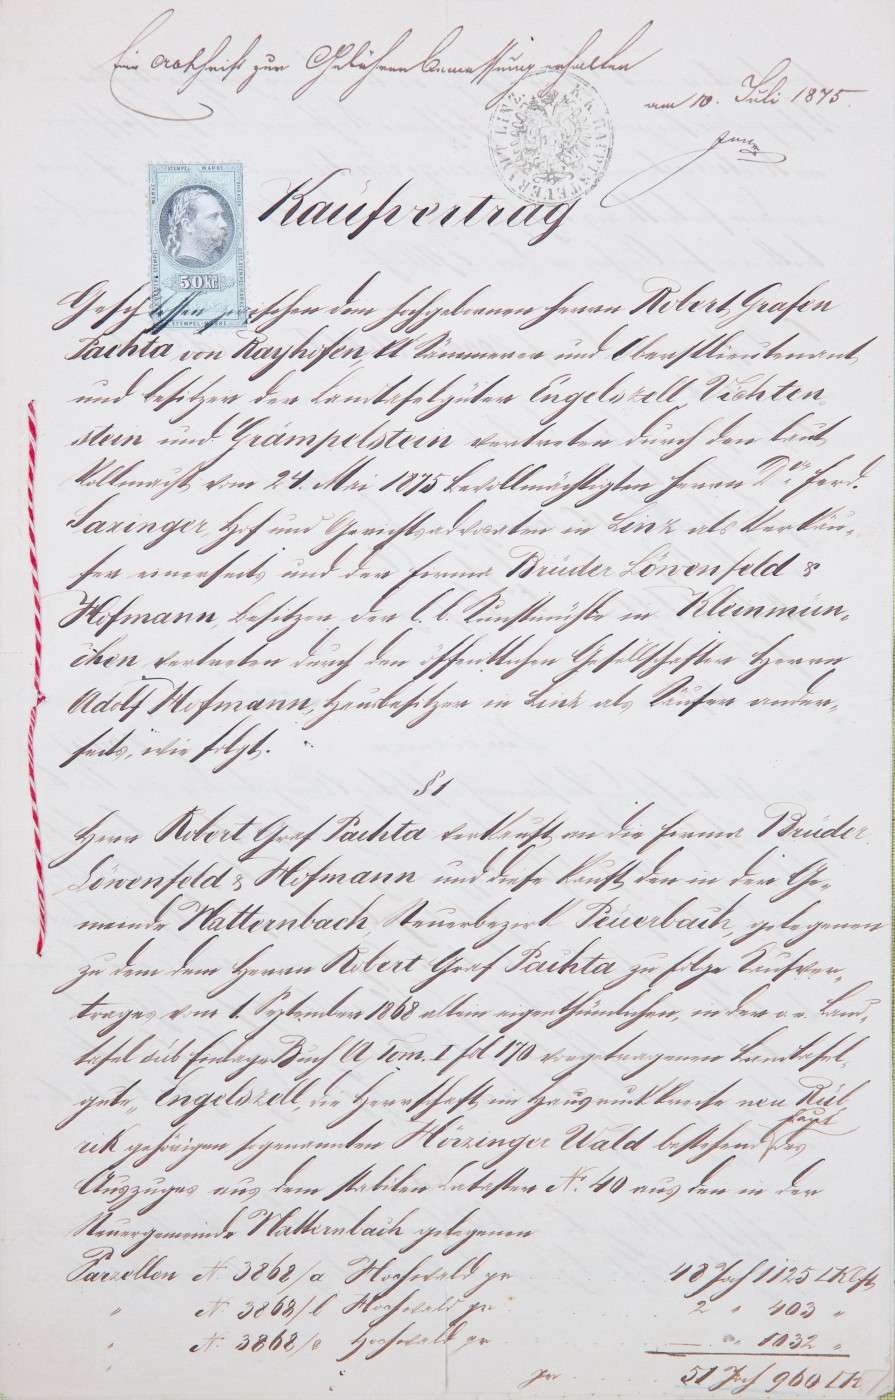 Ein Abschrift zur Gebührenbemessung erhalten
am 10. Juli 1875.
K. K. HAUPTSTEUERAMT LINZ
STEMPEL MARKE
50 Kr
STEMPEL-MARKE
Kaufvertrag
Geschlossen zwischen dem hochgebornen Herrn Robert Grafen
Pachta von Rayhofen, kk Kämmerer und Oberstlieutenant
und Besitzer der Landtafelgüter Engelszell, Vichten-
stein und Grämpelstein vertreten durch den laut
Vollmacht vom 24. Mai 1875 bevollmächtigten Herrn Dor. Ferd.
Saxinger, Hof und Gerichtsadvocaten in Linz als Verkäu-
fer einerseits und der Firma Brüder Löwenfeld &
Hofmann, Besitzer der k. k. Kunstmühle in Kleinmün-
chen vertreten durch den öffentlichen Gesellschafter Herrn
Adolf Hofmann, Hausbesitzer in Linz als Käufer ander-
seits, wie folgt.
§ 1
Herr Robert Graf Pachta verkauft an die Firma Brüder
Löwenfeld & Hofmann und diese kauft den in der Ge-
meinde Natternbach, Steuerbezirk Peuerbach, gelegenen
zu dem dem Herrn Robert Graf Pachta zu folge Kaufver-
trages vom 1. September 1868 allein eigenthümlichen, in der o. e. Land-
tafel sub Einlage Buch A, Tom. I fol 170 vorgetragenen Landtafel-
gute „Engelszell, die Herrschaft im Hausruckkreise
gehörigen sogenannten Hörzinger Wald bestehend laut des
Auszuges aus dem stabilen Cataster No. 40 aus den in der
Steuergemeinde Natternbach gelegenen
Parzellen No. 3868/a Hochwald pr 48 Joch 1125 □Klft
" No. 3868/b Hochwald pr 2 " 403 "
" No. 3868/c Hochwald pr — " 1032 "
pr 51 Joch 960 □K